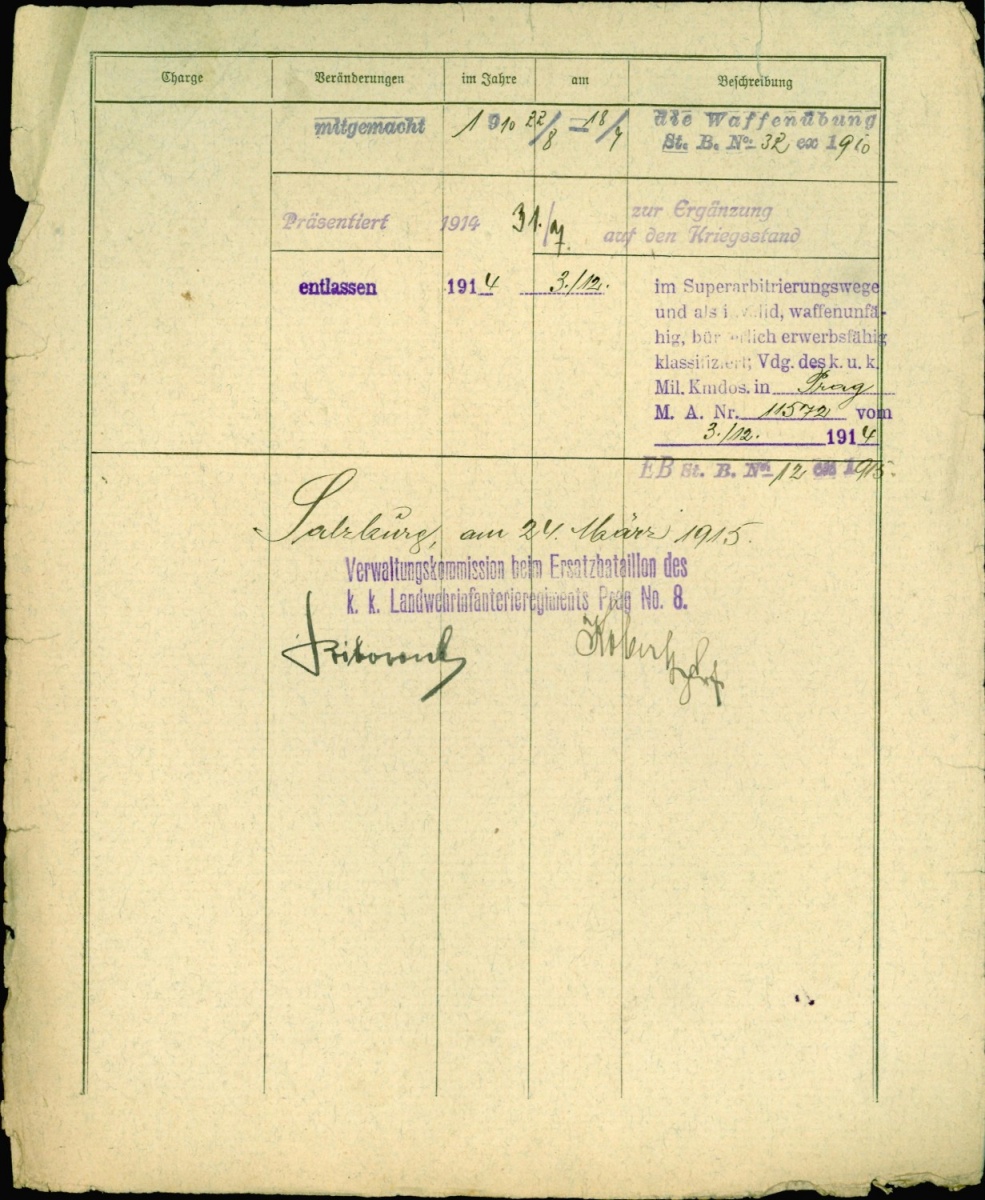 Charge Veränderungen im Jahre am Beschreibung
mitgemacht 1910 22/8 – 18/9 die Waffenübung
St. B. No 32 ex 1910
Präsentiert 1914 31./7. zur Ergänzung
auf den Kriegsstand
entlassen 1914 3./12. im Superarbitrierungswege
und als invalid, waffenunfä-
hig, bürgerlich erwerbsfähig
klassifiziert; Vdg. des k. u. k.
Mil. Kmdos. in Prag
M. A. Nr. 11572 vom
3./12. 1914
EB St. B. No 12 ex 1915.
Salzburg, am 24. März 1915.
Verwaltungskommission beim Ersatzbataillon des
k. k. Landwehrinfanterieregiments Prag No. 8.